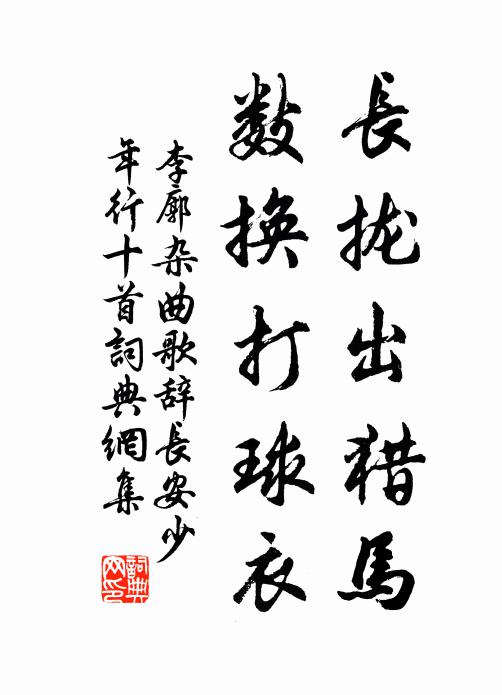 長拢出猎馬
数換打球衣
李廓杂曲歌辞長安少
年行十首詞典網集
詞典
网印